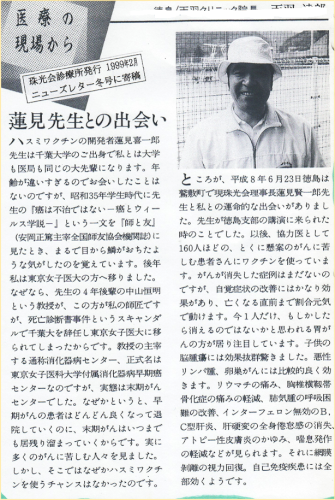 医療の
現場から
珠光会診療所発行 1999年2月
ニューズレター冬号に寄稿
蓮見先生との出会い
ハスミワクチンの開発者蓮見喜一郎
先生は千葉大学のご出身で私とは大学
も医局も同じの大先輩になります。年
齢が違いすぎるのでお会いしたことは
ないのですが、昭和35年学生時代に先
生の『癌は不治ではない―癌とウィー
ルス学説―』という一文を「師と友」
(安岡正篤主宰全国師友協会機関誌)に
見たとき、まるで目から鱗がおちたよ
うな気がしたのを覚えています。後年
私は東京女子医大の方へ移りました。
なぜなら、先生の4年後輩の中山恒明
という教授が、この方が私の師匠です
が、死亡診断書事件というスキャンダ
ルで千葉大を辞任し東京女子医大に移
られてしまったからです。教授の主宰
する通称消化器病センター、正式名は
東京女子医科大学付属消化器病早期癌
センターなのですが、実態は末期がん
センターでした。なぜかというと、早
期がんの患者はどんどん良くなって退
院していくのに、末期がんはいつまで
も居残り溜まっていくからです。実に
多くのがんに苦しむ人々を見ました。
しかし、そこではなぜかハスミワクチ
ンを使うチャンスはなかったのです。
ところが、平成8年6月23日徳島は
鷲敷町で現珠光会理事長蓮見賢一郎先
生と私との運命的な出会いがありまし
た。先生が徳島支部の講演に来られた
時のことでした。以後、協力医として
160人ほどの、とくに懸案のがんに苦
しむ患者さんにワクチンを使っていま
す。がんが消失した症例はまだないの
ですが、自覚症状の改善にはかなり効
果があり、亡くなる直前まで割合元気
で動けます。今1人だけ、もしかした
ら消えるのではないかと思われる胃が
んの方が居り注目しています。子供の
脳腫瘍には効果抜群驚きました。悪性
リンパ腫、卵巣がんには比較的良く効
きます。リウマチの痛み、胸椎横靱帯
骨化症の痛みの軽減、肺気腫の呼吸困
難の改善、インターフェロン無効のB、
C型肝炎、肝硬変の全身倦怠感の消失、
アトピー性皮膚炎のかゆみ、喘息発作
の軽減などが見られます。それに網膜
剥離の視力回復。自己免疫疾患には全
部効くようです。